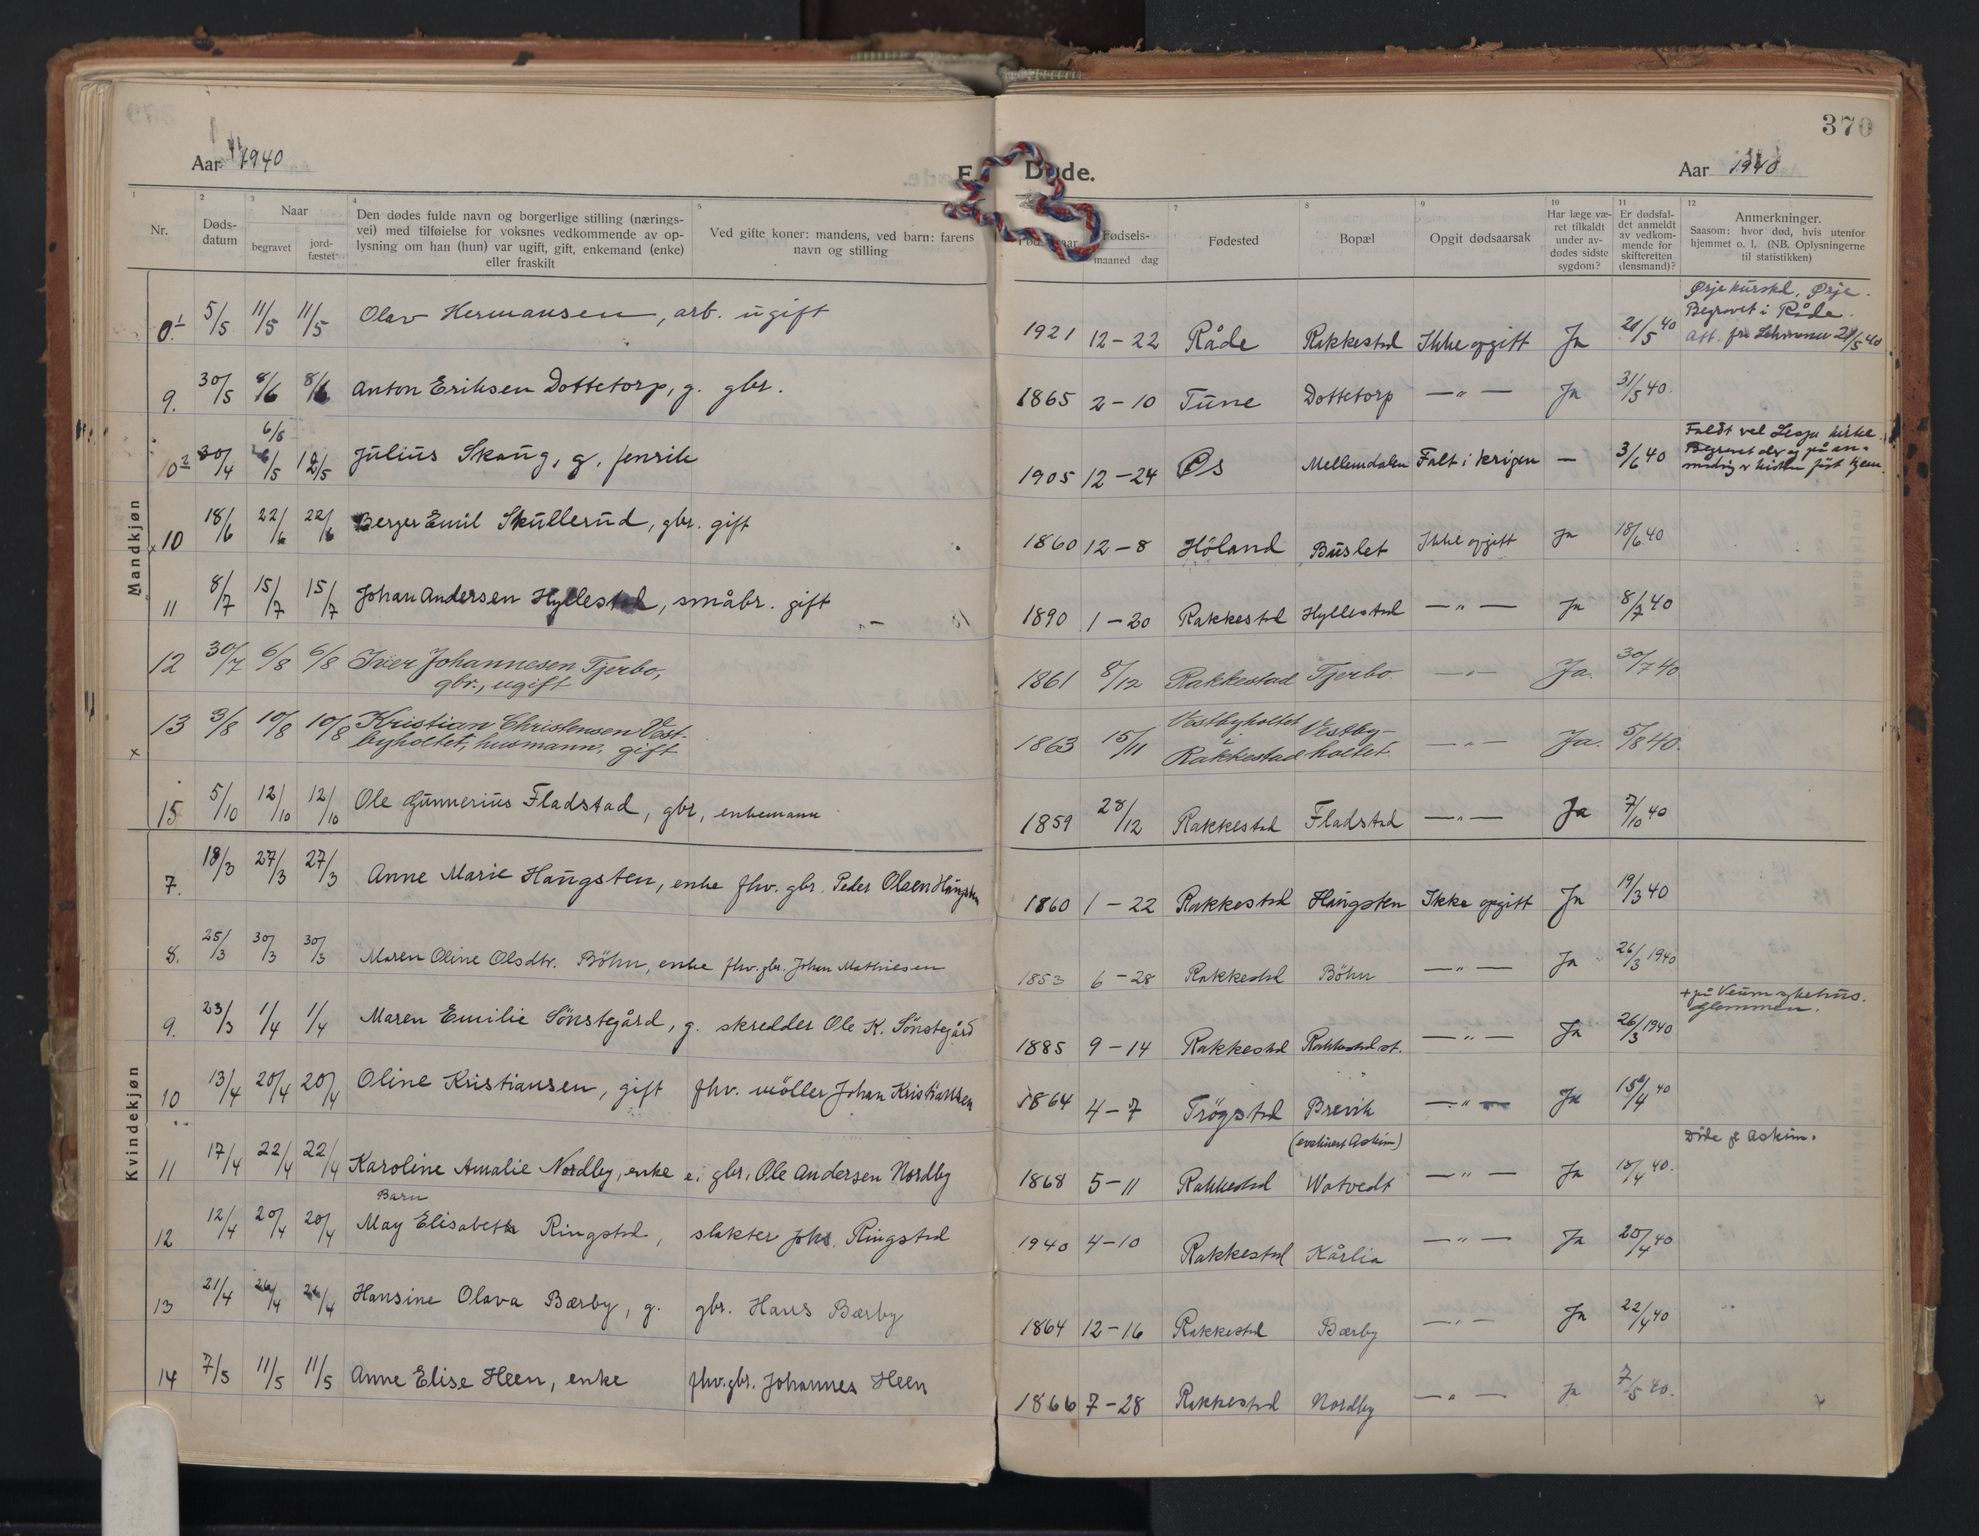 370
Aar 1940
Døde.
Aar 1940
1 2 3 4 5 7 8 9 10 11 12
Nr.
Døds-
datum
Naar
begravet
jord-
fæstet
Den dødes fulde navn og borgerlige stilling (nærings-
vei) med tilføielse for voksnes vedkommende av op-
lysning om han (hun) var ugift, gift, enkemand (enke)
eller fraskilt
Ved gifte koner: mandens, ved barn: farens
navn og stilling
Fødsels-
maaned dag
Fødested
Bopæl
Opgit dødsaarsak
Har læge væ-
ret tilkaldt
under av-
dødes sidste
sygdom?
Er dødsfal-
det anmeldt
av vedkom-
mende for
skifteretten
(lensmand)?
Anmerkninger.
Saasom: hvor død, hvis utenfor
hjemmet o. l. (NB. Oplysningerne
til statistikken)
Mandkjøn
5/5 11/5 11/5 Olav Hermansen, arb. ugift 1921 12-22 Råde Rakkestad Ikke opgitt Ja 21/5 40 Ørje. Begravet i Råde.
9. 30/5 8/6 8/6 Anton Eriksen Dottetorp, g. gbr. 1865 2-10 Tune Dottetorp —"— Ja 31/5 40.
6/5
10² 30/4 Julius Skaug, g. fenrik 1905 12-24 Øs Mellemdalen Falt i krigen — 3/6 40 Faldt ved Lesja kirke.
10 18/6 22/6 22/6 Berger Emil Skullerud, gbr. gift 1860 12-8 Høland Buslet Ikke opgitt Ja 18/6 40
11 8/7 15/7 15/7 Johan Andersen Hyllestad, småbr. gift 1890 1-20 Rakkestad Hyllestad —"— Ja 8/7 40
12 30/7 6/8 6/8 Iver Johannesen Tjerbo, 1861 8/12 Rakkestad Tjerbo. —"— Ja. 30/7 40
gbr., ugift
13 3/8 10/8 10/8 Kristian Christensen Vest- 1863 15/11 Vestbyholtet i Rakkestad Vestby- —"— Ja. 5/8 40.
byholtet, husmann, gift holtet.
15 5/10 12/10 12/10 Ole Gunnerius Fladstad, gbr, enkemann 1859 28/12 Rakkestad Fladstad —"— Ja 7/10 40
Kvindekjøn
7. 18/3 27/3 27/3 Anne Marie Haugsten, enke fhv. gbr. Peder Olsen Haugsten 1860 1-22 Rakkestad Haugsten Ikke opgitt Ja 19/3 40
8. 25/3 30/3 30/3 Maren Oline Olsdtr. Böhn, enke fhv. gbr. Johan Mathiesen 1853 6-28 Rakkestad Böhn —"— Ja 26/3 1940
9. 23/3 1/4 1/4 Maren Emilie Sönstegård, g. skredder Ole K. Sönstegård 1885 9-14 Rakkestad Rakkestad st. —"— Ja 26/3 1940 + på Veum sykehus. Glemmen.
10 13/4 20/4 20/4 Oline Kristiansen, gift fhv. möller Johan Kristiansen 1864 4-7 Trögstad Brevik —"— Ja 15/4 40
11 17/4 22/4 22/4 Karoline Amalie Nordby, enke e. gbr. Ole Andersen Nordby 1868 5-11 Rakkestad (evakuert Askim) Watvedt —"— Ja 18/4 40. Döde i Askim.
Barn
12 12/4 20/4 20/4 May Elisabeth Ringstad, slakter Johs. Ringstad 1940 4-10 Rakkestad Kårlia —"— Ja 20/4 40
13 21/4 26/4 26/4 Hansine Olava Bærby, g. gbr. Hans Bærby 1864 12-16 Rakkestad Bærby —"— Ja 22/4 40
14 7/5 11/5 11/5 Anne Elise Heen, enke fhv. gbr. Johannes Heen 1866 7-28 Rakkestad Nordby —"— Ja 7/5 40.